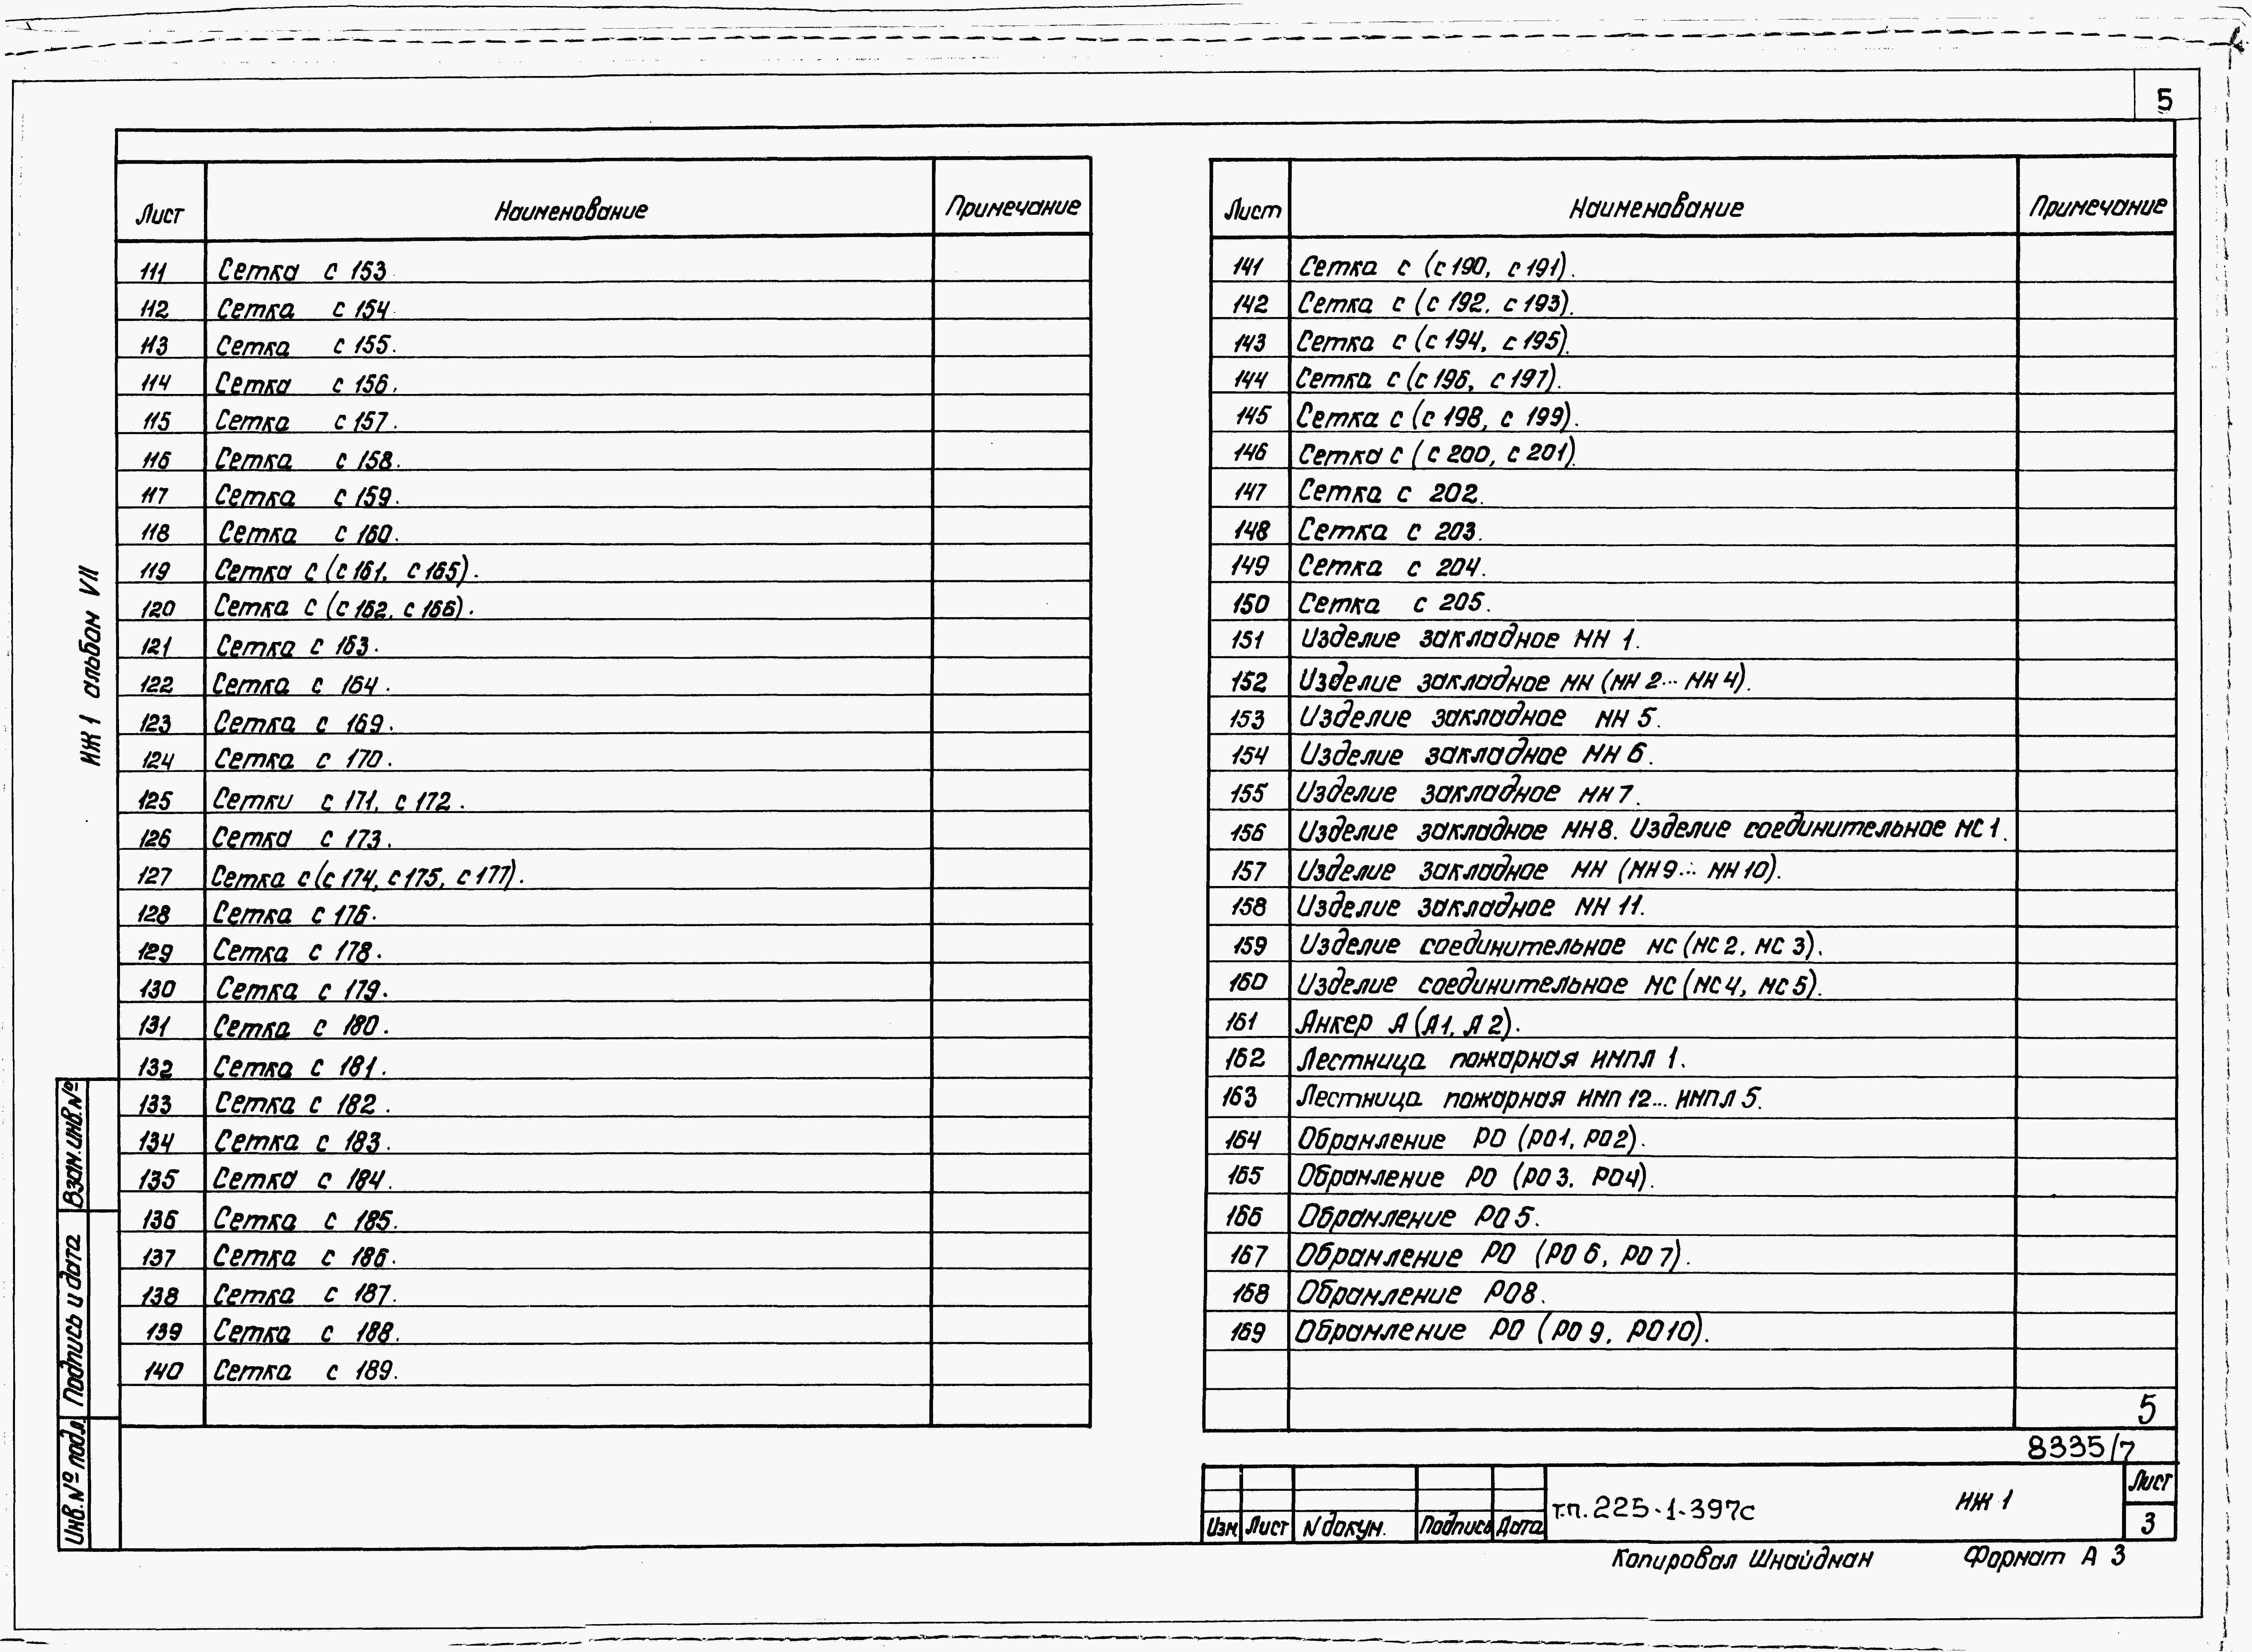 5
Лист Наименование Примечание
111 Сетка с 153.
112 Сетка с 154.
113 Сетка с 155.
114 Сетка с 156.
115 Сетка с 157.
116 Сетка с 158.
117 Сетка с 159.
118 Сетка с 160.
119 Сетка с (с 161, с 165).
120 Сетка с (с 162, с 166).
121 Сетка с 163.
122 Сетка с 164.
123 Сетка с 169.
124 Сетка с 170.
125 Сетки с 171, с 172.
126 Сетка с 173.
127 Сетка с (с 174, с 175, с 177).
128 Сетка с 176.
129 Сетка с 178.
130 Сетка с 179.
131 Сетка с 180.
132 Сетка с 181.
133 Сетка с 182.
134 Сетка с 183.
135 Сетка с 184.
136 Сетка с 185.
137 Сетка с 186.
138 Сетка с 187.
139 Сетка с 188.
140 Сетка с 189.
Лист Наименование Примечание
141 Сетка с (с 190, с 191).
142 Сетка с (с 192, с 193).
143 Сетка с (с 194, с 195).
144 Сетка с (с 196, с 197).
145 Сетка с (с 198, с 199).
146 Сетка с (с 200, с 201).
147 Сетка с 202.
148 Сетка с 203.
149 Сетка с 204.
150 Сетка с 205.
151 Изделие закладное МН 1.
152 Изделие закладное МН (МН 2... МН 4).
153 Изделие закладное МН 5.
154 Изделие закладное МН 6.
155 Изделие закладное МН 7.
156 Изделие закладное МН 8. Изделие соединительное МС 1.
157 Изделие закладное МН (МН 9... МН 10).
158 Изделие закладное МН 11.
159 Изделие соединительное МС (МС 2, МС 3).
160 Изделие соединительное МС (МС 4, МС 5).
161 Анкер А (А 1, А 2).
162 Лестница пожарная ИМПЛ 1.
163 Лестница пожарная ИМП 12... ИМПЛ 5.
164 Обрамление РО (РО 1, РО 2).
165 Обрамление РО (РО 3, РО 4).
166 Обрамление РО 5.
167 Обрамление РО (РО 6, РО 7).
168 Обрамление РО 8.
169 Обрамление РО (РО 9, РО 10).
5
8335/7
ИЖ 1 альбом VII
Взам. инв. №
Подпись и дата
Инв. № подл.
Изм Лист N докум. Подпись Дата
т.п. 225-1-397с ИЖ 1
Лист
3
Копировал Шнайдман Формат А 3